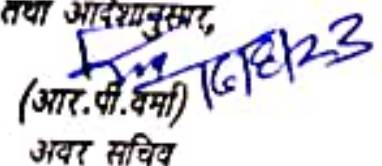 तथा आदेशानुसार,
16/8/23
(आर.पी.वर्मा)
अवर सचिव